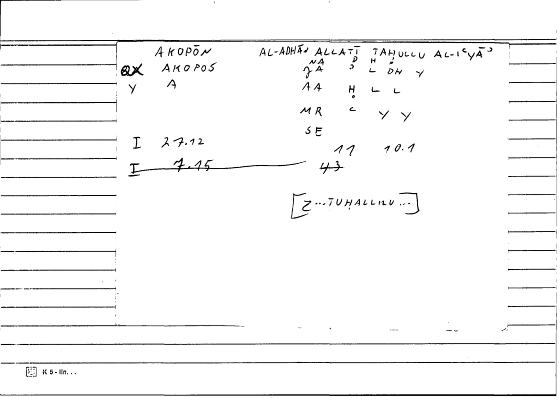 AKOPŌN AL-ADHĀN ALLATĪ TAḤULLU AL-IʿYĀʾ
AKOPOS NA D Ḥ
ʾ L DH Y
Y A AA Ḥ L L
MR ʿ Y Y
SE
I 27.12 11 10.1
I 7.15 43
[Z...TUḤALLILU...]
K 5 - lin. . .